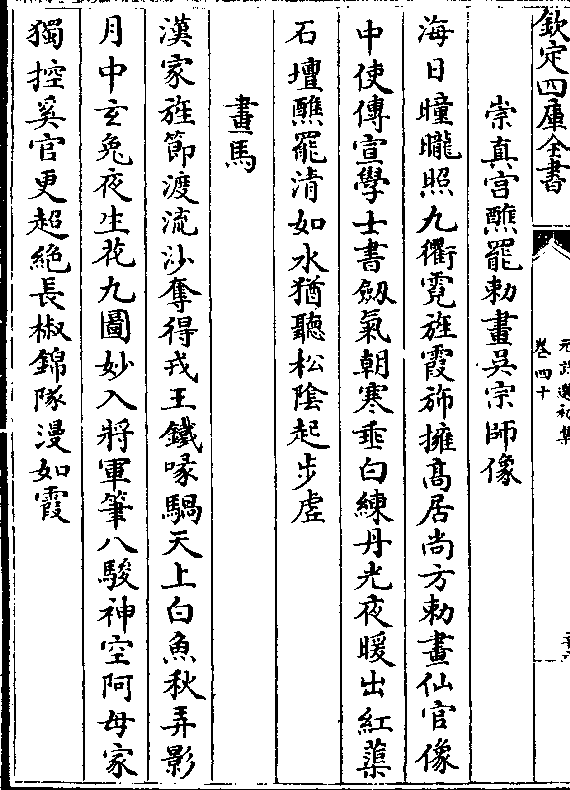 欽定四庫全書
元詩選初集
卷四十
崇真宫醮罷勅畫吳宗師像
海日曈曨照九衢霓旌霞旆擁髙居尚方勅畫仙官像
中使傳宣學士書劔氣朝寒垂白練丹光夜暖出紅蕖
石壇醮罷清如水猶聽松陰起步虛
畫馬
漢家旌節渡流沙奪得戎王鐵喙騧天上白魚秋弄影
月中玄兎夜生花九圖妙入將軍筆八駿神空阿母家
獨控奚官更超絶長楸錦隊漫如霞